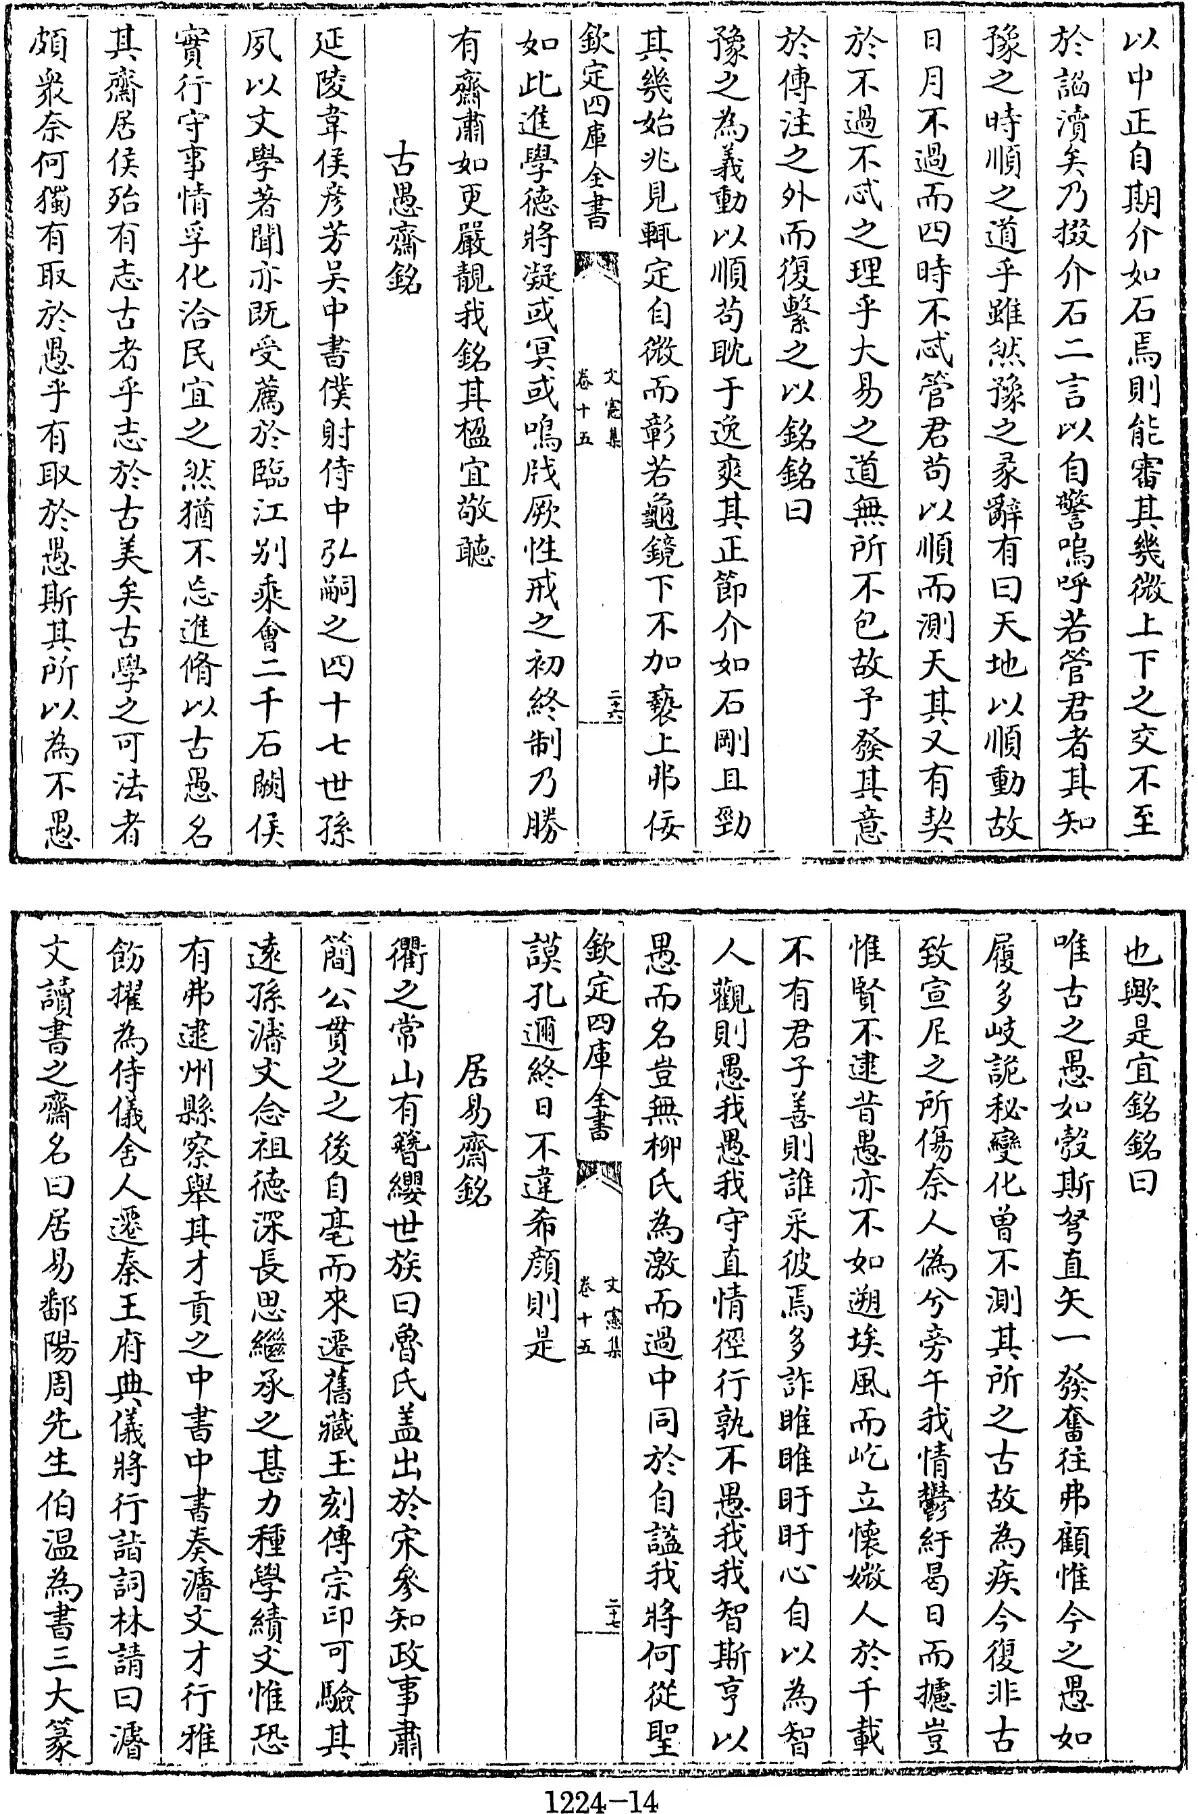 以中正自期介如石焉則能審其幾微上下之交不至
於諂瀆矣乃掇介石二言以自警嗚呼若管君者其知
豫之時順之道乎雖然豫之彖辭有曰天地以順動故
日月不過而四時不忒管君苟以順而測天其又有契
於不過不忒之理乎大易之道無所不包故予發其意
於傳注之外而復繫之以銘銘曰
豫之為義動以順苟耽于逸爽其正節介如石剛且勁
其幾始兆見輒定自微而彰若龜鏡下不加褻上弗佞
欽定四庫全書
文憲集
卷十五
二十六
如此進學德將凝或冥或鳴戕厥性戒之初終制乃勝
有齋肅如更嚴靚我銘其楹宜敬聽
古愚齋銘
延陵韋侯彥芳吳中書僕射侍中弘嗣之四十七世孫
夙以文學著聞亦既受薦於臨江别乘會二千石闕侯
實行守事情孚化洽民宜之然猶不忘進脩以古愚名
其齋居侯殆有志古者乎志於古美矣古學之可法者
頗衆奈何獨有取於愚乎有取於愚斯其所以為不愚
也歟是宜銘銘曰
唯古之愚如彀斯弩直矢一發奮往弗顧惟今之愚如
履多岐詭秘變化曾不測其所之古故為疾今復非古
致宣尼之所傷奈人偽兮旁午我情鬱紆曷日而攄豈
惟賢不逮昔愚亦不如遡埃風而屹立懷媺人於千載
不有君子善則誰采彼焉多詐睢睢盱盱心自以為智
人觀則愚我愚我守直情徑行孰不愚我我智斯亨以
愚而名豈無柳氏為激而過中同於自謚我將何從聖
欽定四庫全書
文憲集
卷十五
二十七
謨孔邇終日不違希顔則是
居易齋銘
衢之常山有簪纓世族曰魯氏盖出於宋參知政事肅
簡公貫之之後自亳而來遷舊藏玉刻傳宗印可驗其
逺孫濬文念祖德深長思繼承之甚力種學績文惟恐
有弗逮州縣察舉其才貢之中書中書奏濬文才行雅
飭擢為侍儀舍人遷秦王府典儀將行詣詞林請曰濬
文讀書之齋名曰居易鄱陽周先生伯温為書三大篆
1224-14